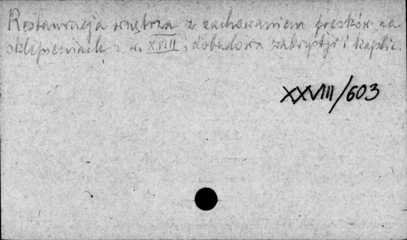 Restauracja wnętrza z zachowaniem fresków na
sklepieniach z w. XVIII, dobudowa zakrystji i kaplic.
XXVIII/603